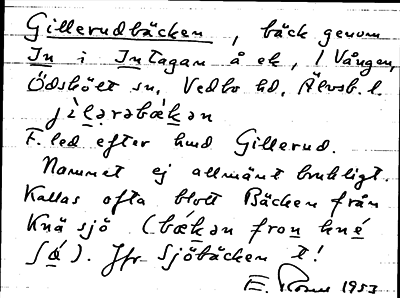 Gillerudbäcken, bäck genom
In i Intagan å ek, 1 Vången,
Ödskölt sn, Vedbo hd, Älvsb. l.
jìlərəbǽkən
F. led efter hmd Gillerud.
Namnet ej allmänt brukligt.
Kallas ofta blott Bäcken från
Knä sjö (bǽkən fron kné
ʃǿ). Jfr Sjöbäcken t!
E. 1953